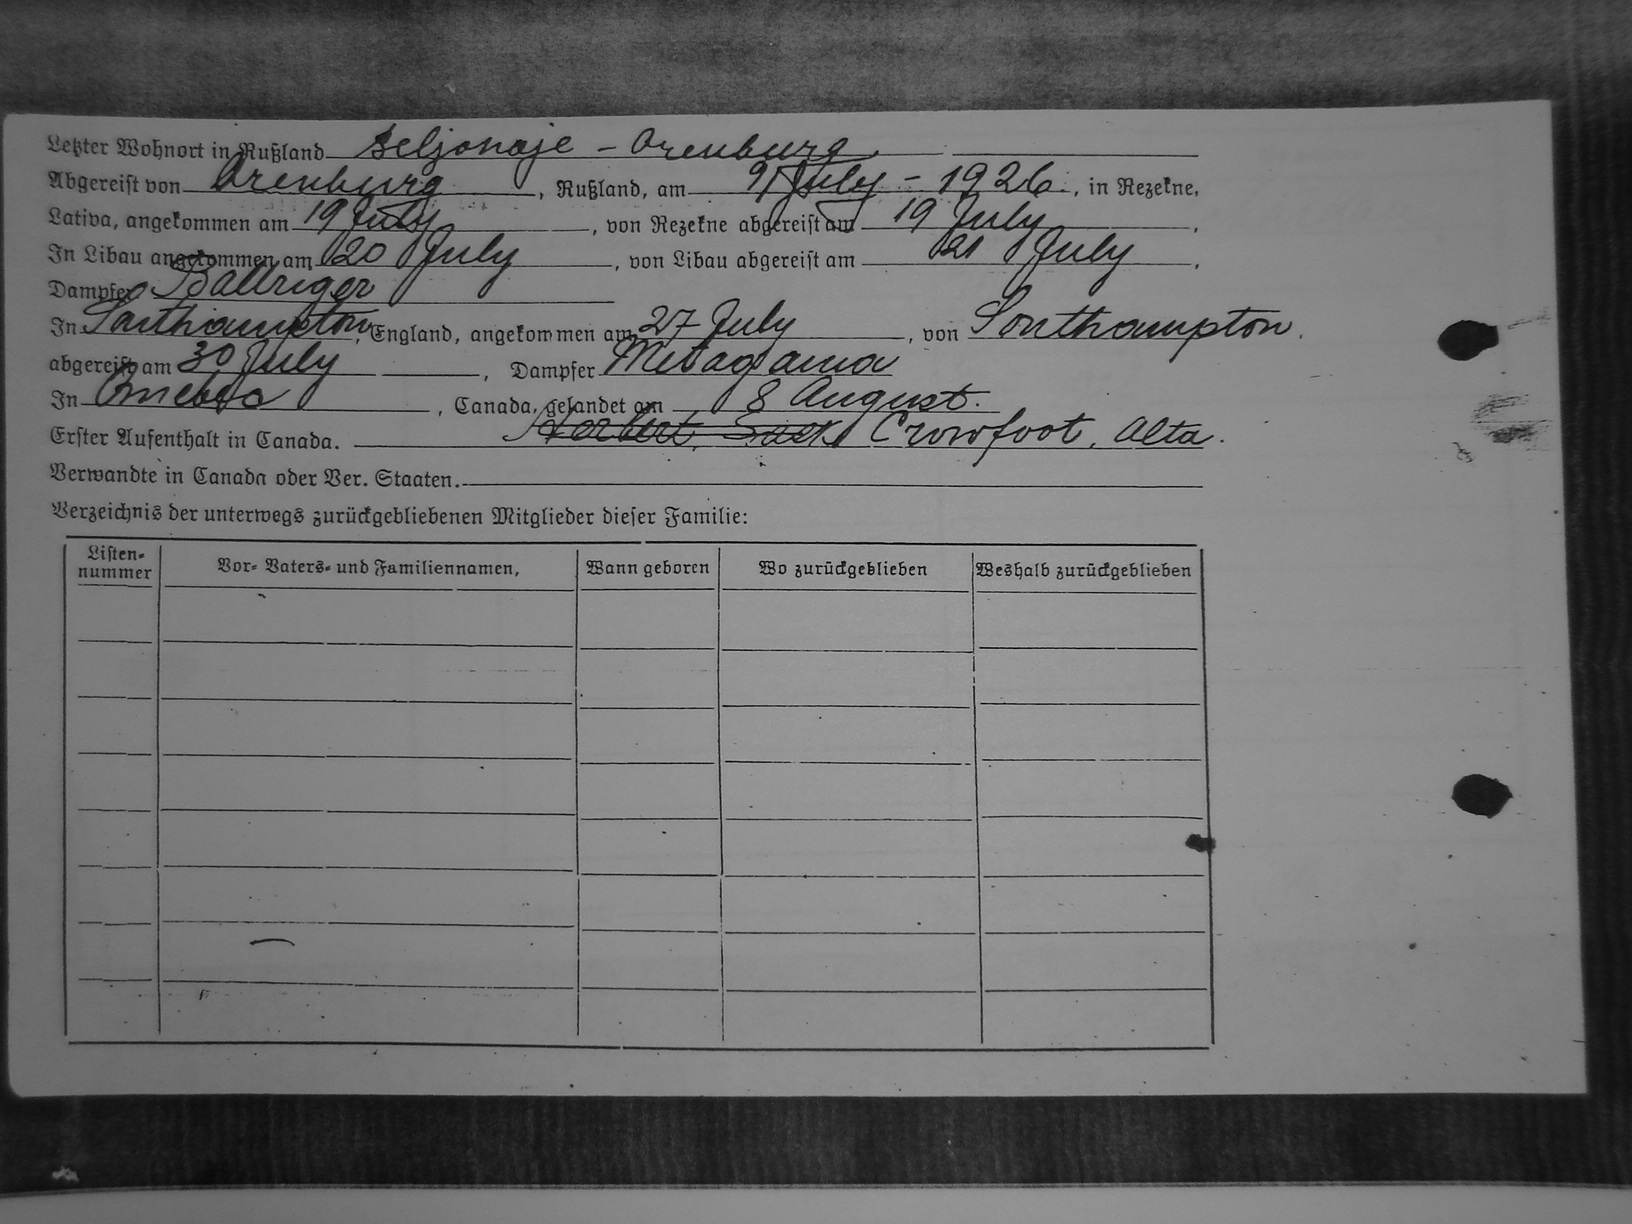 Letzter Wohnort in Rußland Seljonoje - Orenburg.
Abgereist von Orenburg, Rußland, am 9 July - 1926., in Rezekne,
Lativa, angekommen am 19 July, von Rezekne abgereist am 19 July.
In Libau angekommen am 20 July, von Libau abgereist am 21 July.
Dampfer Baltriger
In Southampton, England, angekommen am 27 July, von Southampton.
abgereist am 30 July, Dampfer Metagama
In Quebec, Canada, gelandet am 8 August.
Erster Aufenthalt in Canada. Herbert, Sask Crowfoot, Alta.
Verwandte in Canada oder Ver. Staaten.
Verzeichnis der unterwegs zurückgebliebenen Mitglieder dieser Familie:
Listen-
nummer
Vor- Vaters- und Familiennamen,
Wann geboren
Wo zurückgeblieben
Weshalb zurückgeblieben